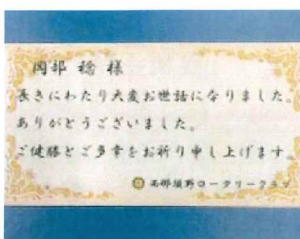 岡部 稔 様
長きにわたり大変お世話になりました。
ありがとうございました。
ご健勝とご多幸をお祈り申し上げます。
西那須野ロータリークラブ